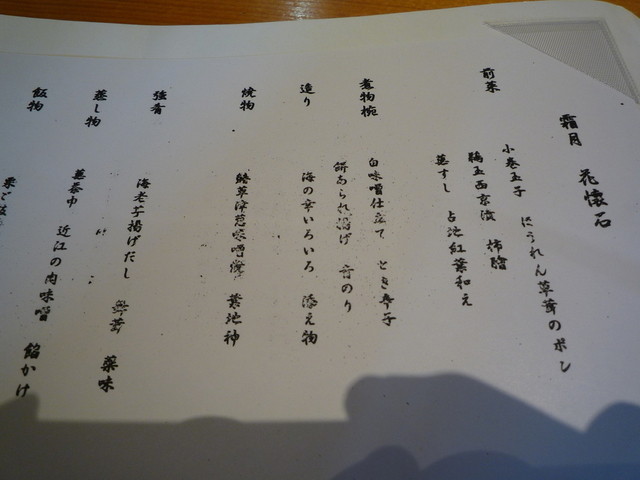 霜月 花懐石
前菜
小巻玉子 ほうれん草茸のポレ
鶉玉西京漬 柿膾
蒸すし 占地紅葉和え
煮物椀
白味噌仕立て とき辛子
餅あられ揚げ 青のり
造り
海の幸いろいろ 添え物
焼物
味噌焼
強肴
海老芋揚げだし 薬味
蒸し物
蒸茶巾 近江の肉味噌 餡かけ
飯物
栗ご飯